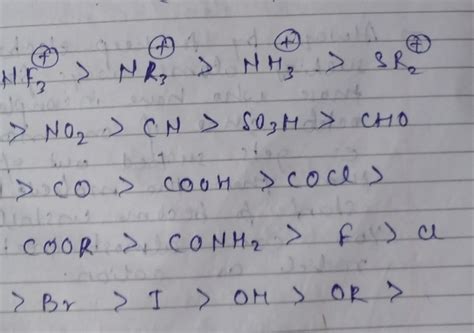 NF₃⊕ > NR₃⊕ > NH₃⊕ > SR₂⊕
> NO₂ > CN > SO₃H > CHO
> CO > COOH > COCl >
COOR > CONH₂ > F > Cl
> Br > I > OH > OR >